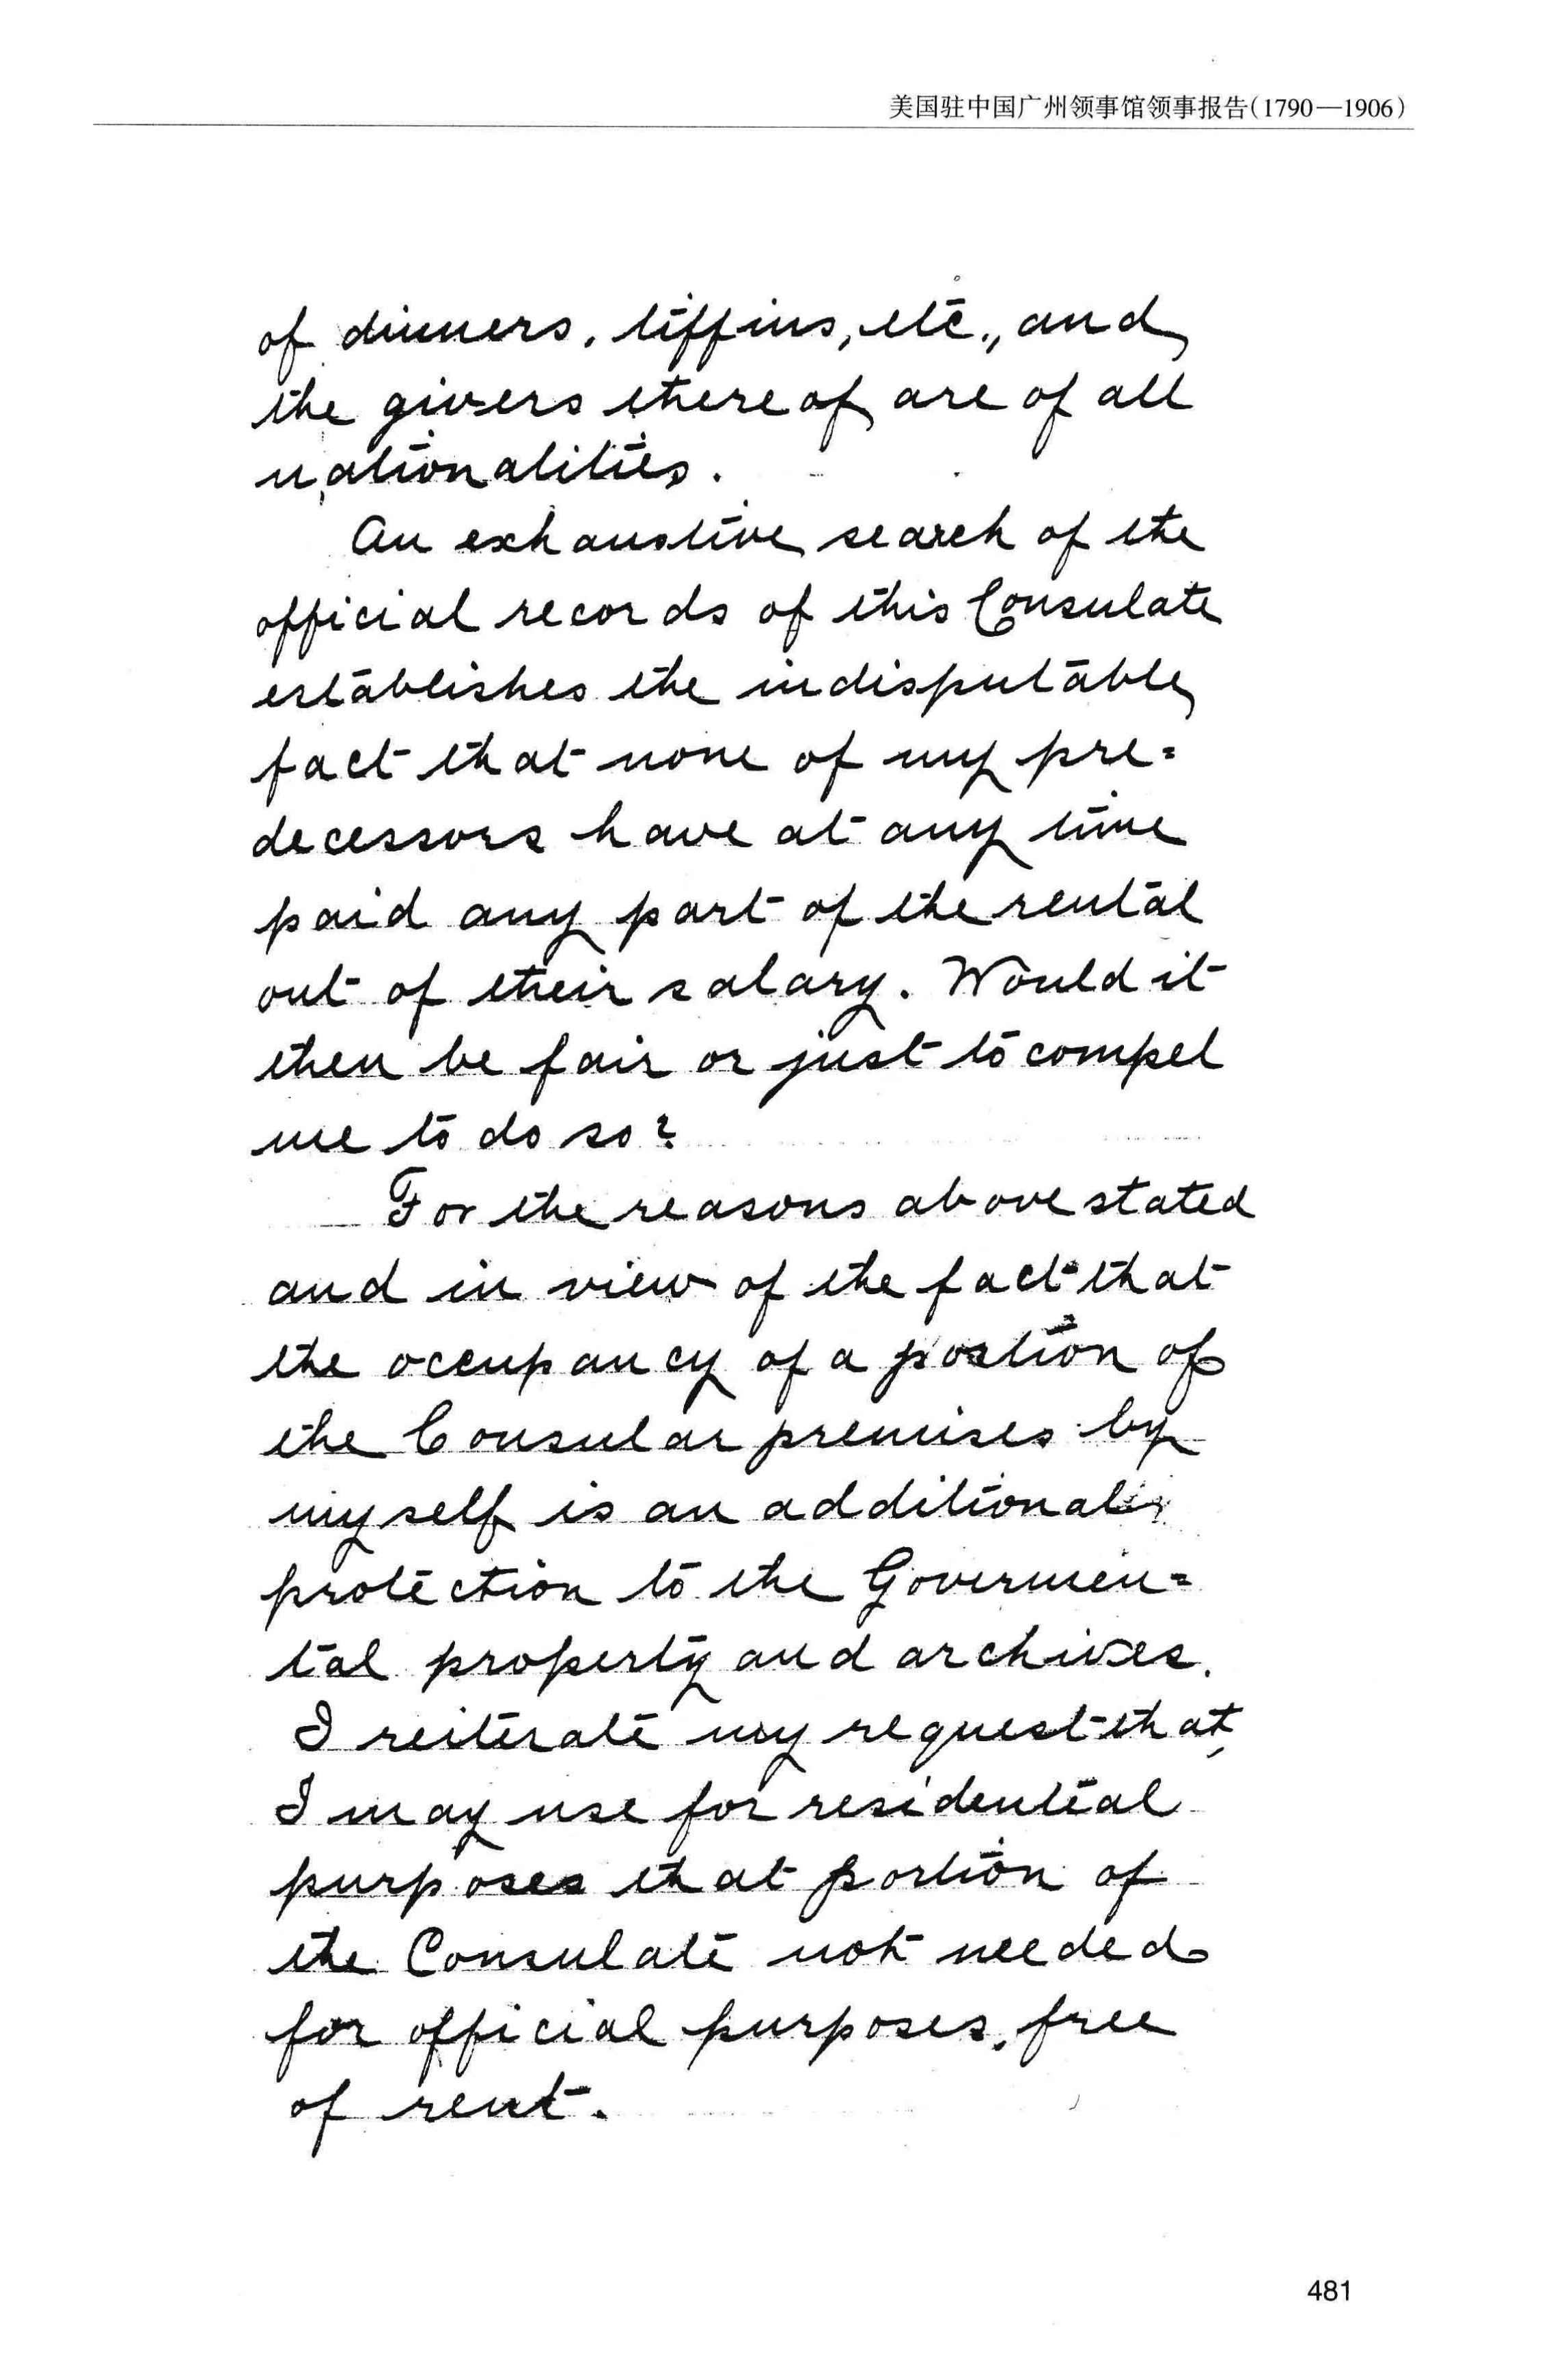 美国驻中国广州领事馆领事报告(1790—1906)
of dinners, tiffins, etc., and
the givers thereof are of all
nationalities.
An exhaustive search of the
official records of this Consulate
establishes the indisputable
fact that none of my pre=
decessors have at any time
paid any part of the rental
out of their salary. Would it
then be fair or just to compel
me to do so?
For the reasons above stated
and in view of the fact that
the occupancy of a portion of
the Consular premises by
myself is an additional
protection to the Govermen=
tal property and archives.
I reiterate my request that
I may use for residential
purposes that portion of
the Consulate not needed
for official purposes, free
of rent.
481